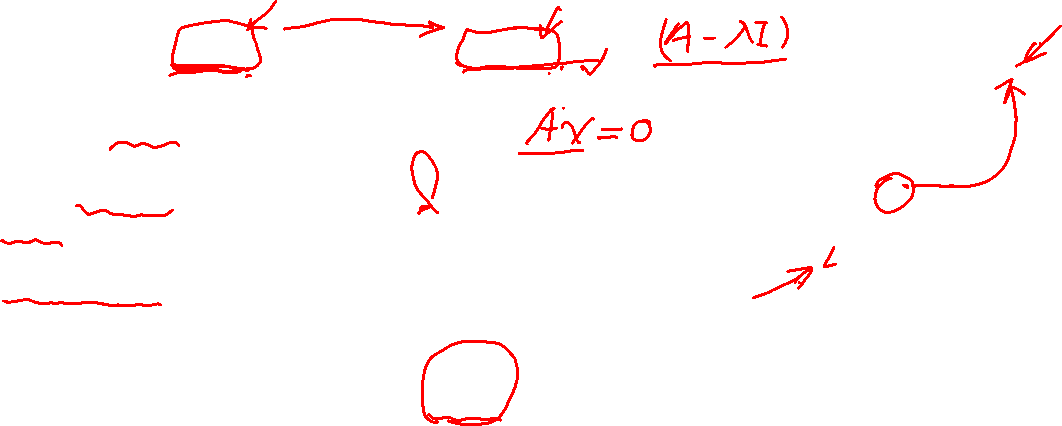 (A - λI)
Ax = 0